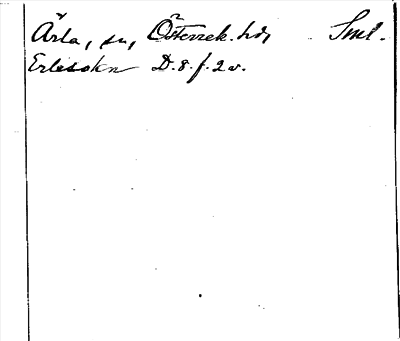 Ärla, sn, Österrek. hd, Sml.
Erlesokn D. 8. f. 2 v.